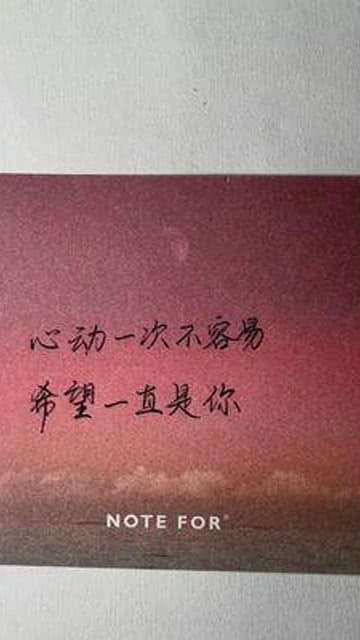 心动一次不容易
希望一直是你
NOTE FOR®